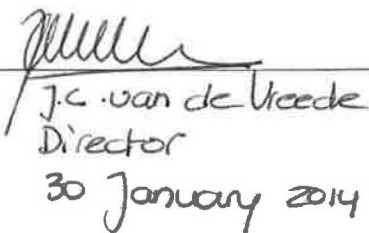 J.C. van de Vreede
Director
30 January 2014